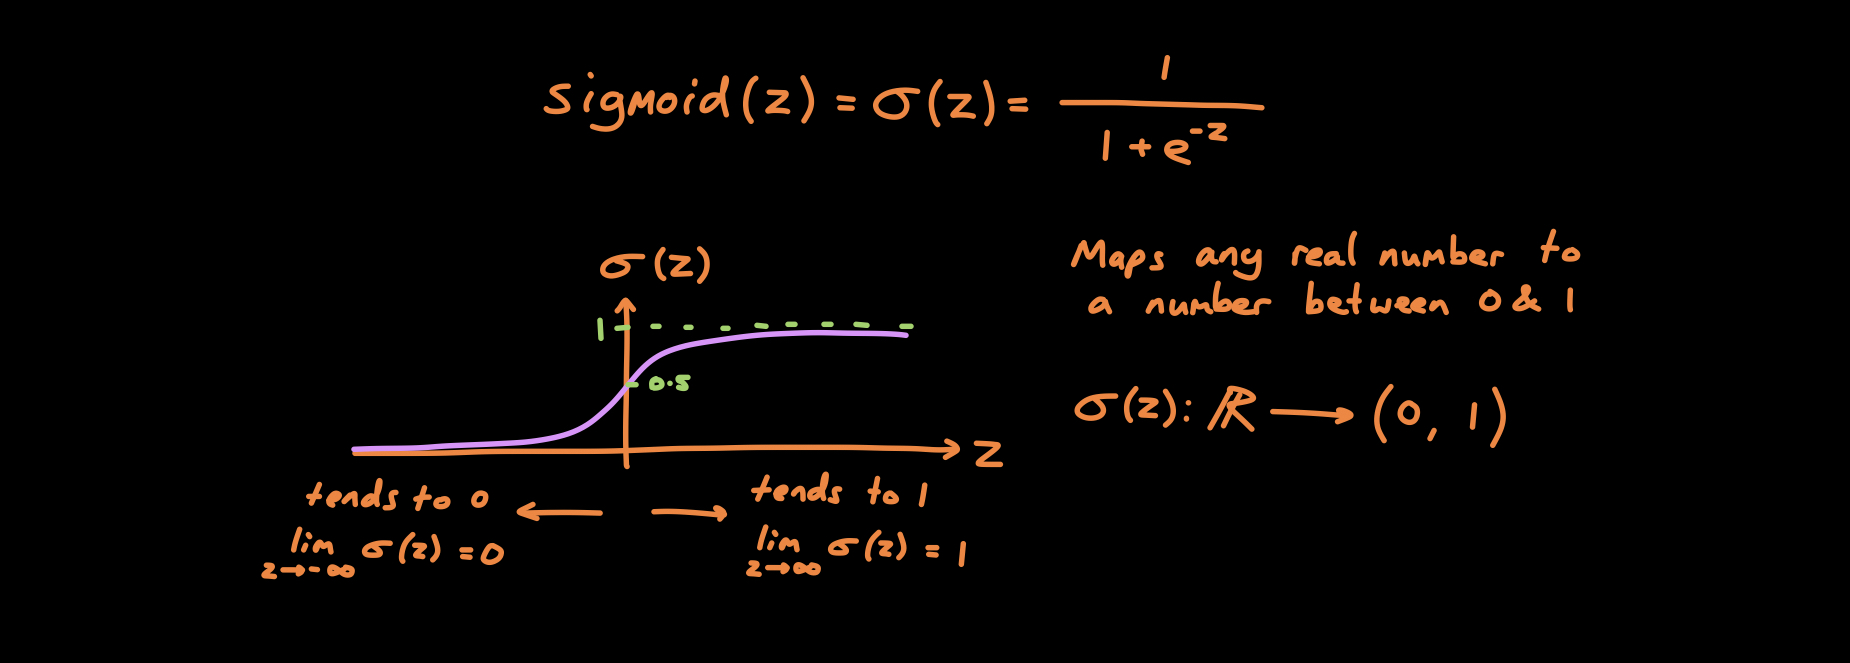 Sigmoid(z) = σ(z) = 1 / (1 + e^-z)
σ(z)
1
0.5
z
tends to 0 ← → tends to 1
lim z→-∞ σ(z) = 0
lim z→∞ σ(z) = 1
Maps any real number to
a number between 0 & 1
σ(z): ℝ → (0, 1)